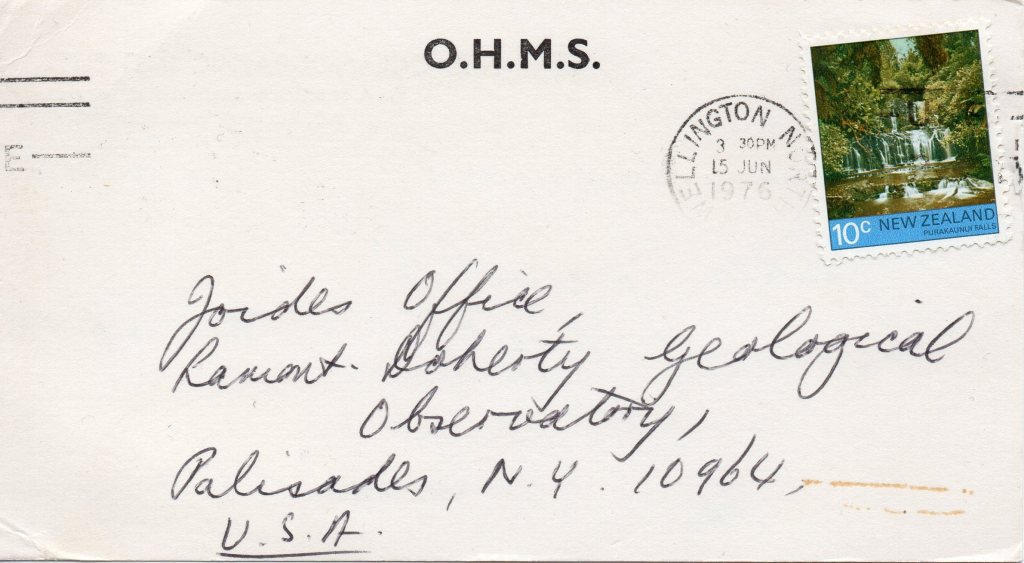 O.H.M.S.
WELLINGTON
3 30PM
15 JUN
1976
E
10c NEW ZEALAND
PURAKAUNUI FALLS
Joides Office,
Lamont-Doherty Geological
Observatory,
Palisades, N.Y. 10964,
U.S.A.